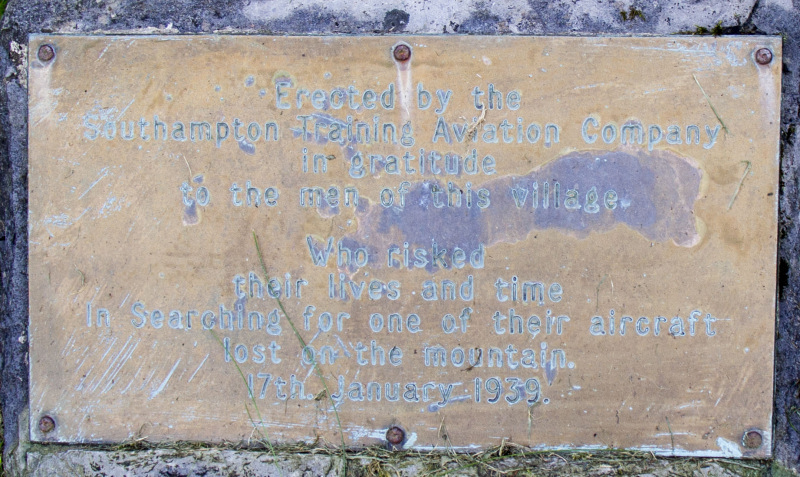 Erected by the
Southampton Training Aviation Company
in gratitude
to the men of this village
Who risked
their lives and time
In Searching for one of their aircraft
lost on the mountain.
17th. January 1939.